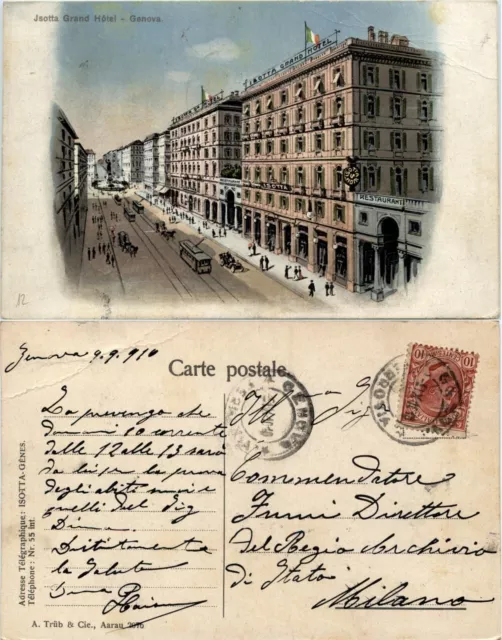 Jsotta Grand Hôtel - Genova.
ISOTTA GRAND HOTEL
ISOTTA
RESTAURANT
12
Genova 9.9.910
Carte postale.
GENOVA
10
10
La prevengo che
domani 10 corrente
dalle 12 alle 13 sarà
da lui per la prova
degli abiti miei e
quelli del Sig
Distintamente
la saluto
Ill Sig
Commendatore
Fumi Direttore
del Regio Archivio
di Stato
Milano
Adresse Télégraphique: ISOTTA-GÊNES.
Téléphone: Nr. 55 int.
A. Trüb & Cie., Aarau